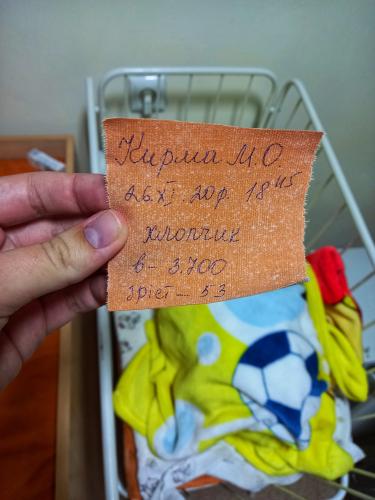 Кирма М.О.
26.XI.20р. 18 45
хлопчик
в- 3.700
зріст - 53